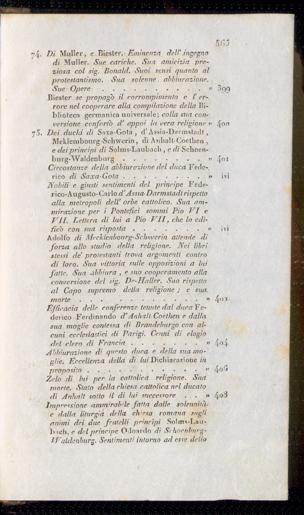 565
74. Di Muller, e Biester. Eminenza dell' ingegno
di Muller. Sue cariche. Sua amicizia pre-
ziosa col sig. Bonald. Suoi sensi quanto al
protestantismo. Sua solenne abbiurazione.
Sue Opere . . . . . . . . . . . " 399
Biester se propagò il corrompimento e l' er-
rore nel cooperare alla compilazione della Bi-
blioteca germanica universale; colla sua con-
versione confortò d' appoi la vera religione " 400
75. Dei duchi di Saxa-Gota, d'Assia-Darmstadt,
Mecklembourg-Schwerin, di Anhalt-Coethen,
e dei principi di Solms-Laubach, e di Schoen-
burg-Waldenburg . . . . . . . . " 401
Circostanze della abbiurazione del duca Fede-
rico di Saxa-Gota . . . . . . . . " ivi
Nobili e giusti sentimenti del principe Fede-
rico-Augusto-Carlo d'Assia-Darmstadt rispetto
alla metropoli dell' orbe cattolico. Sua am-
mirazione per i Pontefici sommi Pio VI e
VII. Lettera di lui a Pio VII, che lo edi-
ficò con sua risposta . . . . . . . " ivi
Adolfo di Mecklembourg-Schwerin attende di
forza allo studio della religione. Nei libri
stessi de' protestanti trova argomenti contro
di loro. Sua vittoria sulle opposizioni a lui
fatte. Sua abbiura, e suo cooperamento alla
conversione del sig. De-Haller. Suo rispetto
al Capo supremo della religione; e sua
morte . . . . . . . . . . . . "
Efficacia delle conferenze tenute dal duca Fe-
derico Ferdinando d'Anhalt Coethen e dalla
sua moglie contessa di Brandeburgo con al-
cuni ecclesiastici di Parigi. Cenni di elogio
del clero di Francia . . . . . . . " 404
Abbiurazione di questo duca e della sua mo-
glie. Eccellenza della di lui Dichiarazione in
proposito . . . . . . . . . . . " 406
Zelo di lui per la cattolica religione. Sua
morte. Stato della chiesa cattolica nel ducato
di Anhalt sotto il di lui successore . . " 408
Impressione ammirabile fatta dalle solennità
e dalla liturgia della chiesa romana sugli
animi dei due fratelli principi Solms-Lau-
bach, e del principe Odoardo di Schoenburg-
Waldenburg. Sentimenti intorno ad esse dello